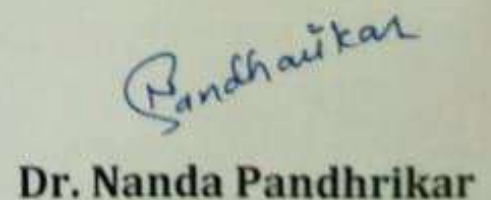 Pandharikar
Dr. Nanda Pandhrikar